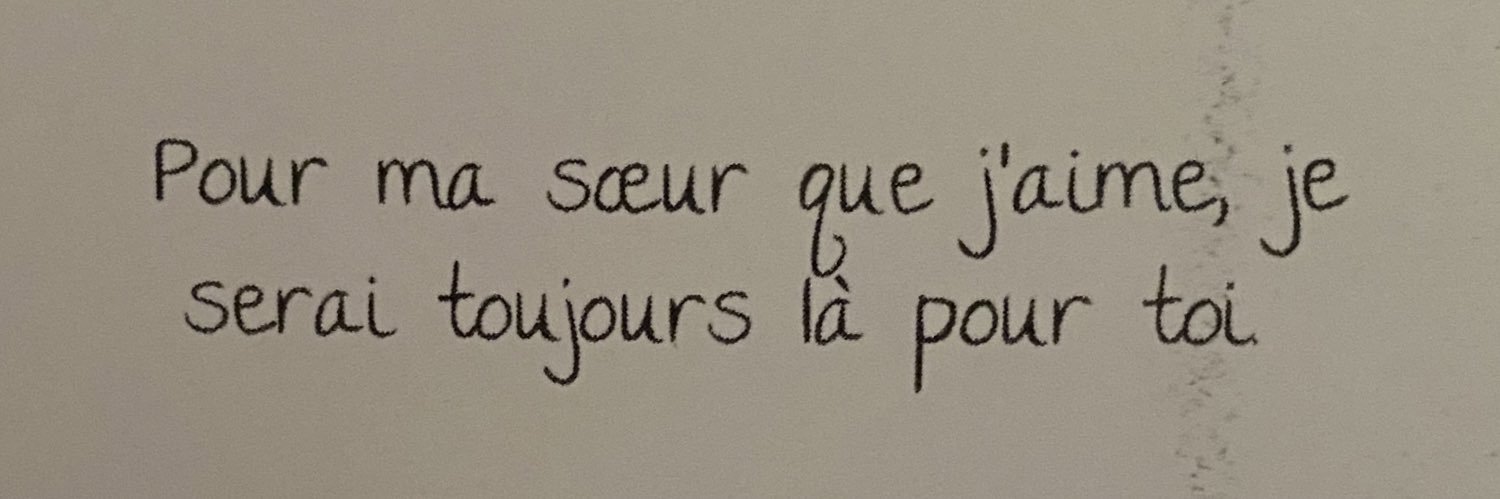 Pour ma sœur que j'aime, je
serai toujours là pour toi.